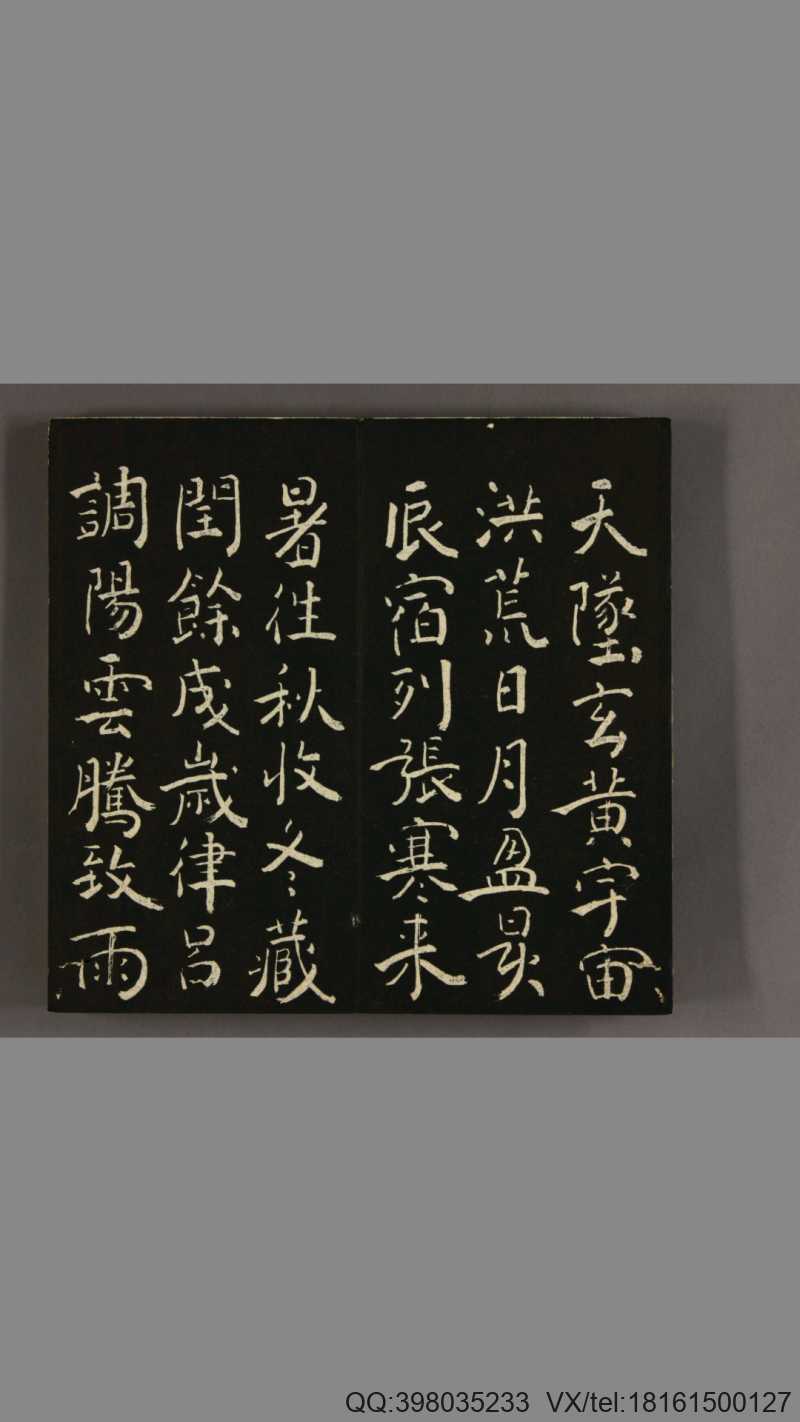 天墬玄黄宇宙
洪荒日月盈昃
辰宿列張寒来
暑往秋收冬藏
閏餘成歲律吕
調陽雲騰致雨
QQ:398035233 VX/tel:18161500127